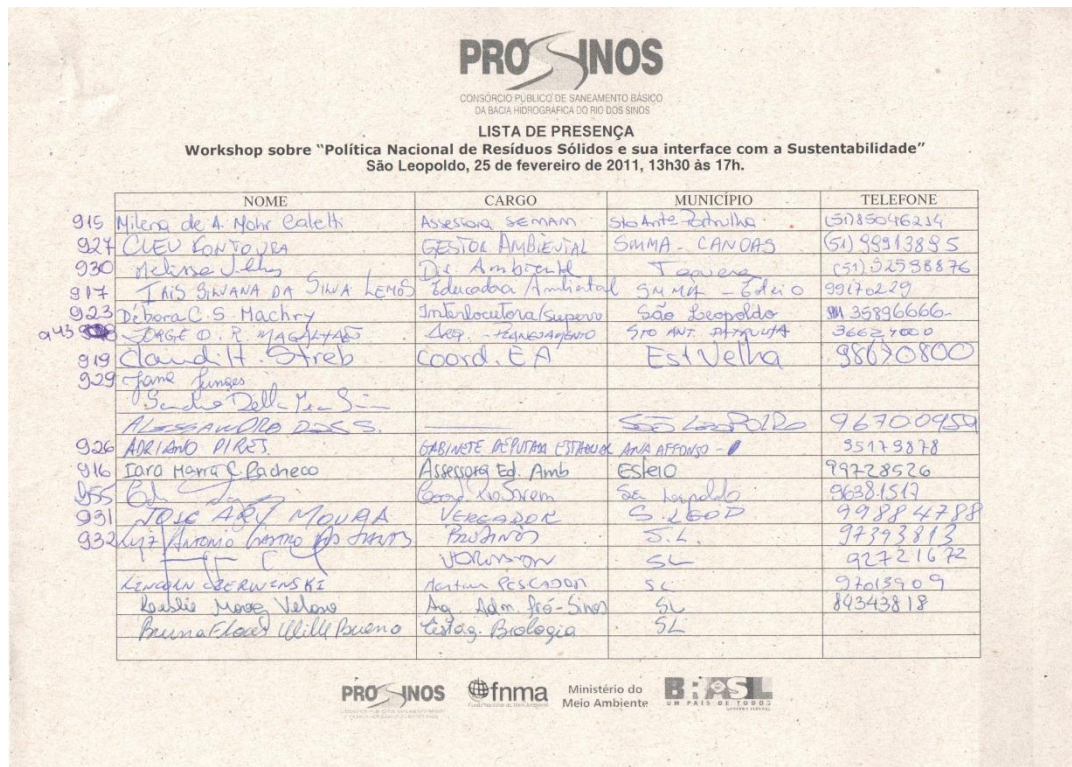 PRO SINOS
CONSÓRCIO PÚBLICO DE SANEAMENTO BÁSICO
DA BACIA HIDROGRÁFICA DO RIO DOS SINOS
LISTA DE PRESENÇA
Workshop sobre "Política Nacional de Resíduos Sólidos e sua interface com a Sustentabilidade"
São Leopoldo, 25 de fevereiro de 2011, 13h30 às 17h.
NOME CARGO MUNICÍPIO TELEFONE
915 Milena de A. Mohr Caletti Assessora SEMAM Sto Antº Patrulha (51)85046234
927 CLEU FONTOURA GESTOR AMBIENTAL SMMA - CANOAS (51) 99913895
930 Melissa Dir. Ambiental Taquara (51) 92598876
917 SILVANA DA SILVA LEMOS Educadora Ambiental SMMA - Esteio 99170229
923 Débora C. S. Machry Interlocutora/Superv São Leopoldo 35896666
943 JORGE D. R. MAGALHÃES Arq. - PLANEJAMENTO STO ANT. PATRULHA 36627000
919 Claudi Streb Coord. EA Est Velha 98670800
929 Junges
Sandro Della
ALESSANDRO DOS S. SÃO LEOPOLDO 96700959
926 ADRIANO PIRES GABINETE DEPUTADA ESTADUAL ANA AFFONSO 95179878
916 Iara Maria C. Pacheco Assessora Ed. Amb Esteio 99728526
955 Coord. Leopoldo 96381517
931 JOSE ARY MOURA VEREADOR S. LEOP 99884788
932 Luiz ANTONIO CASTRO DOS SANTOS PROSINOS S.L. 97393813
SL 92721672
LINCOLN CZERWINSKI Martim PESCADOR SL 97013909
Veloso Ag. Adm. Pró-Sinos SL 84343818
Bruna Flores Wille Bueno Estag. Biologia SL
PRO SINOS fnma Ministério do
Meio Ambiente BRASIL
UM PAÍS DE TODOS
GOVERNO FEDERAL